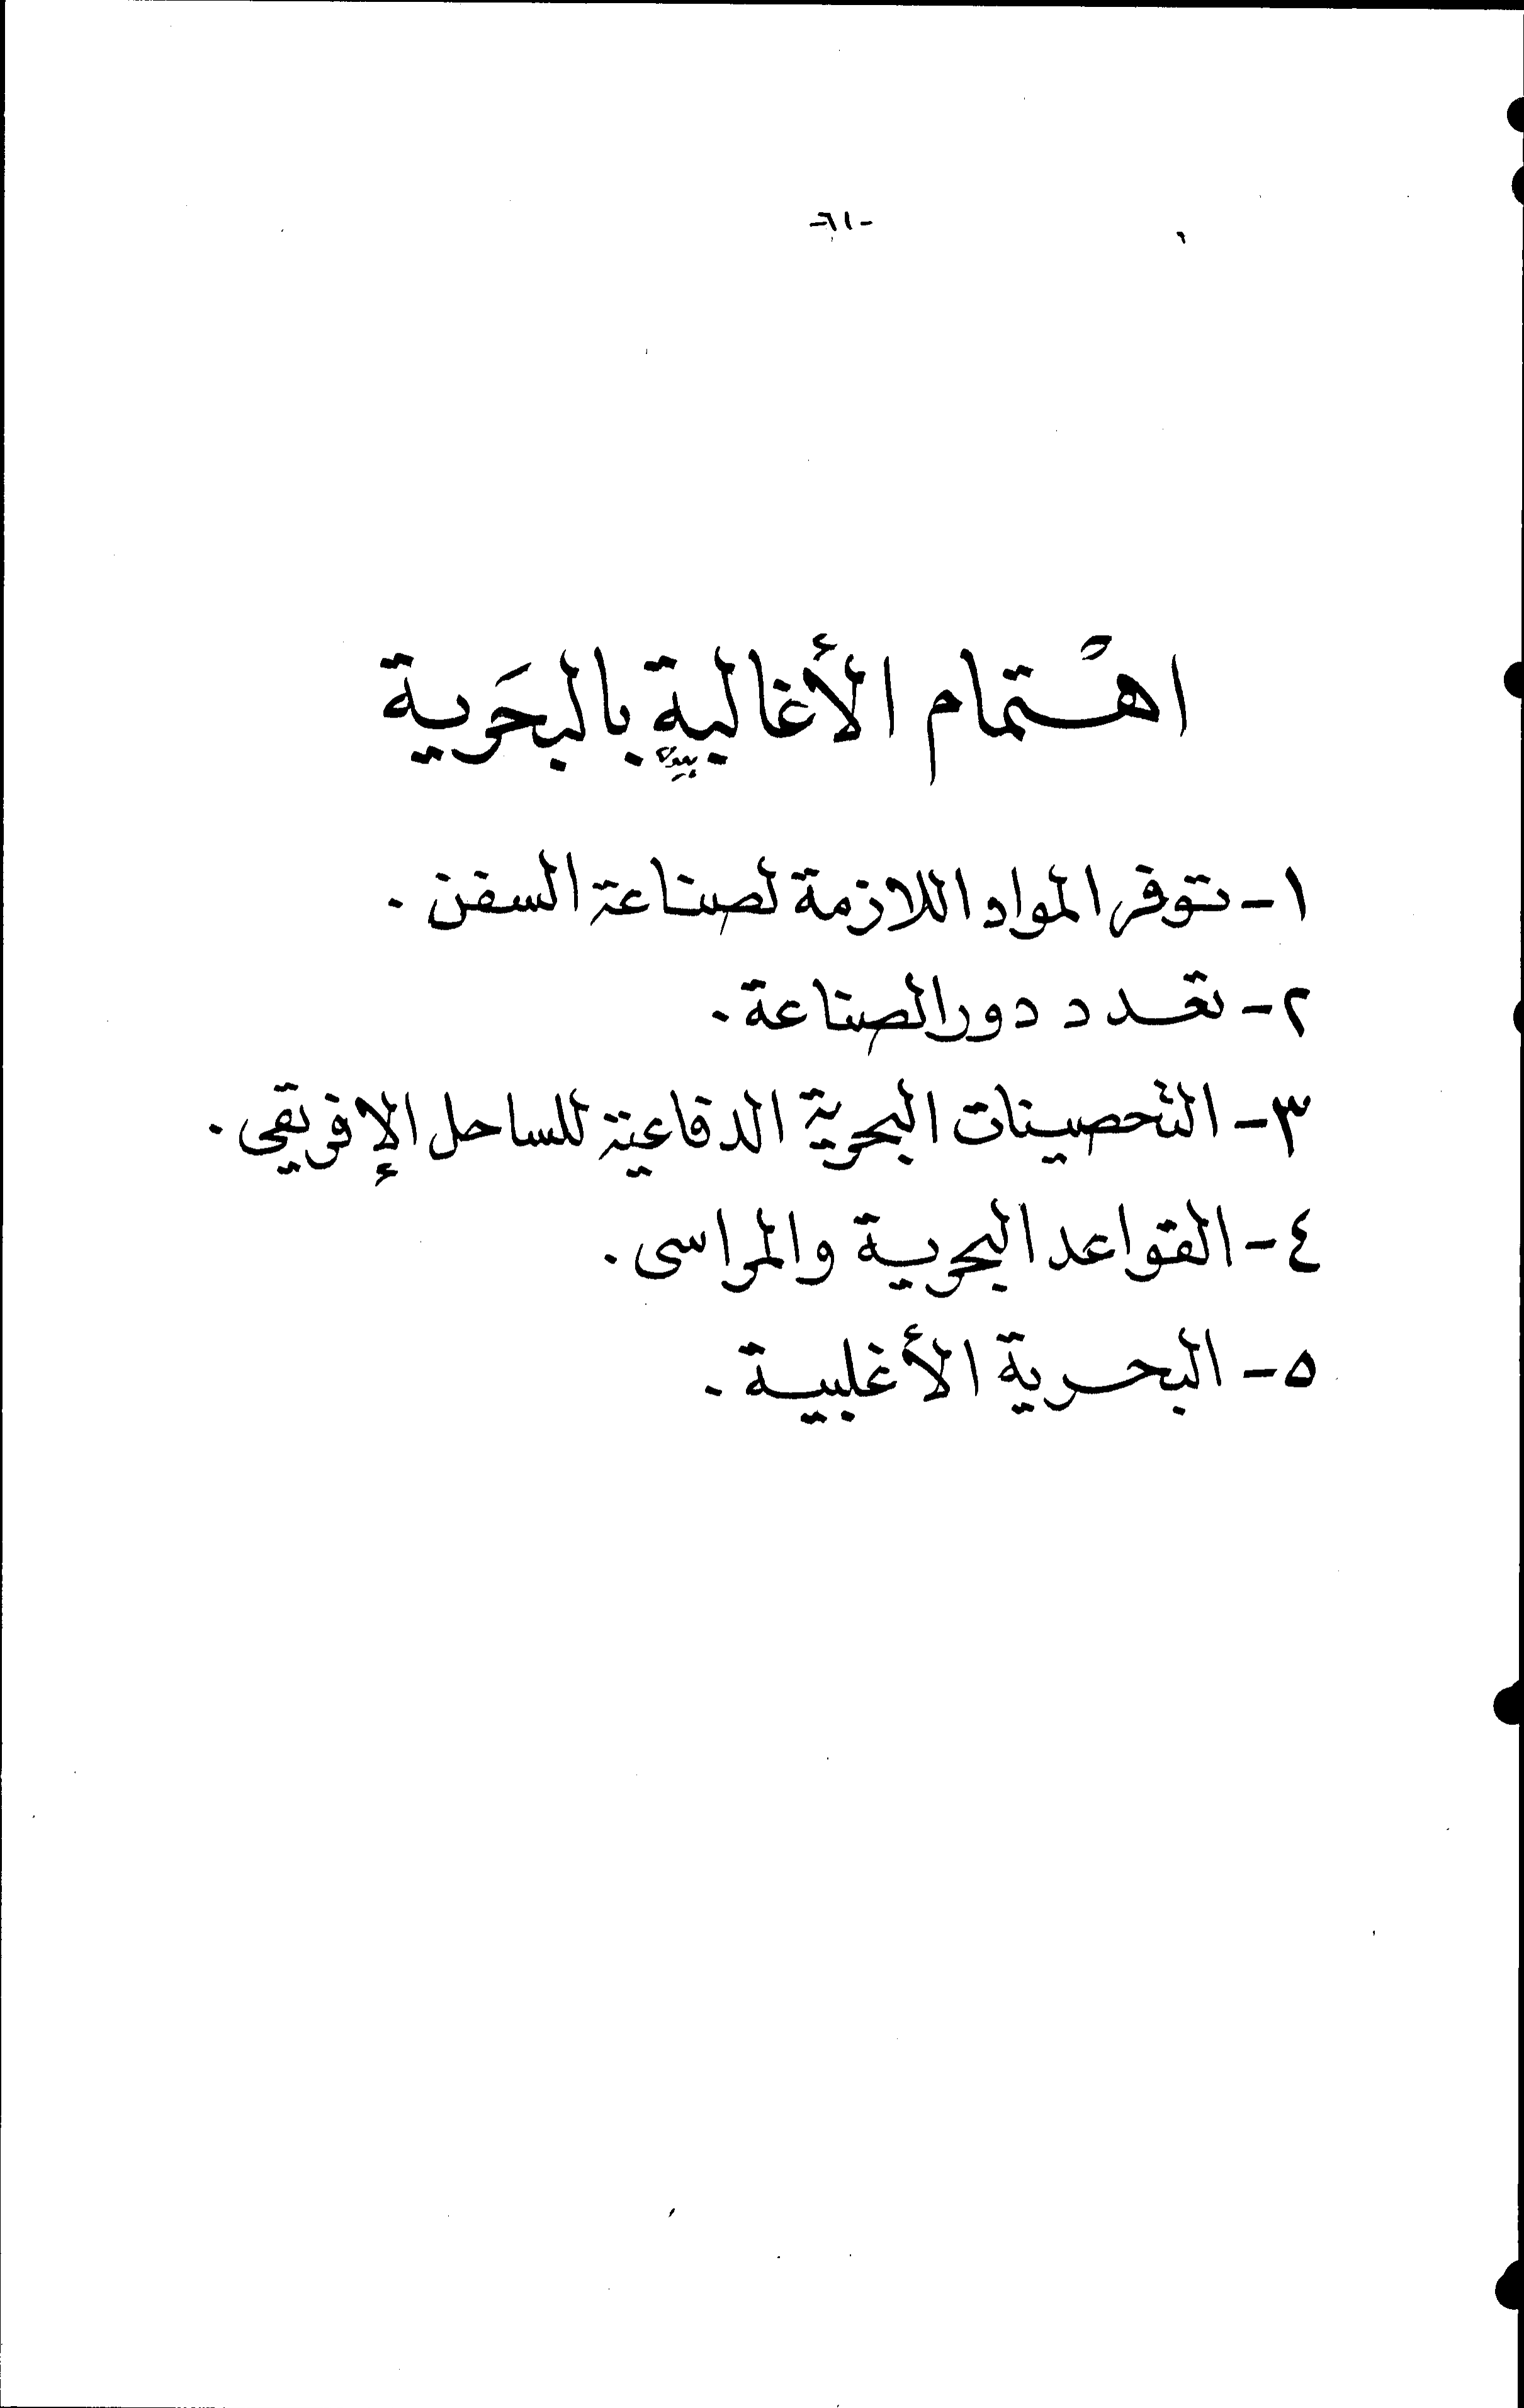 -٦١-
اهْتمام الأغالبة بالبحَرية
١- توفر المواد اللازمة لصناعة السفن .
٢- تعدد دور الصناعة .
٣- التحصينات البحرية الدفاعية للساحل الإفريقى .
٤- القواعد البحرية والمراسى .
٥- البحرية الأغلبية .